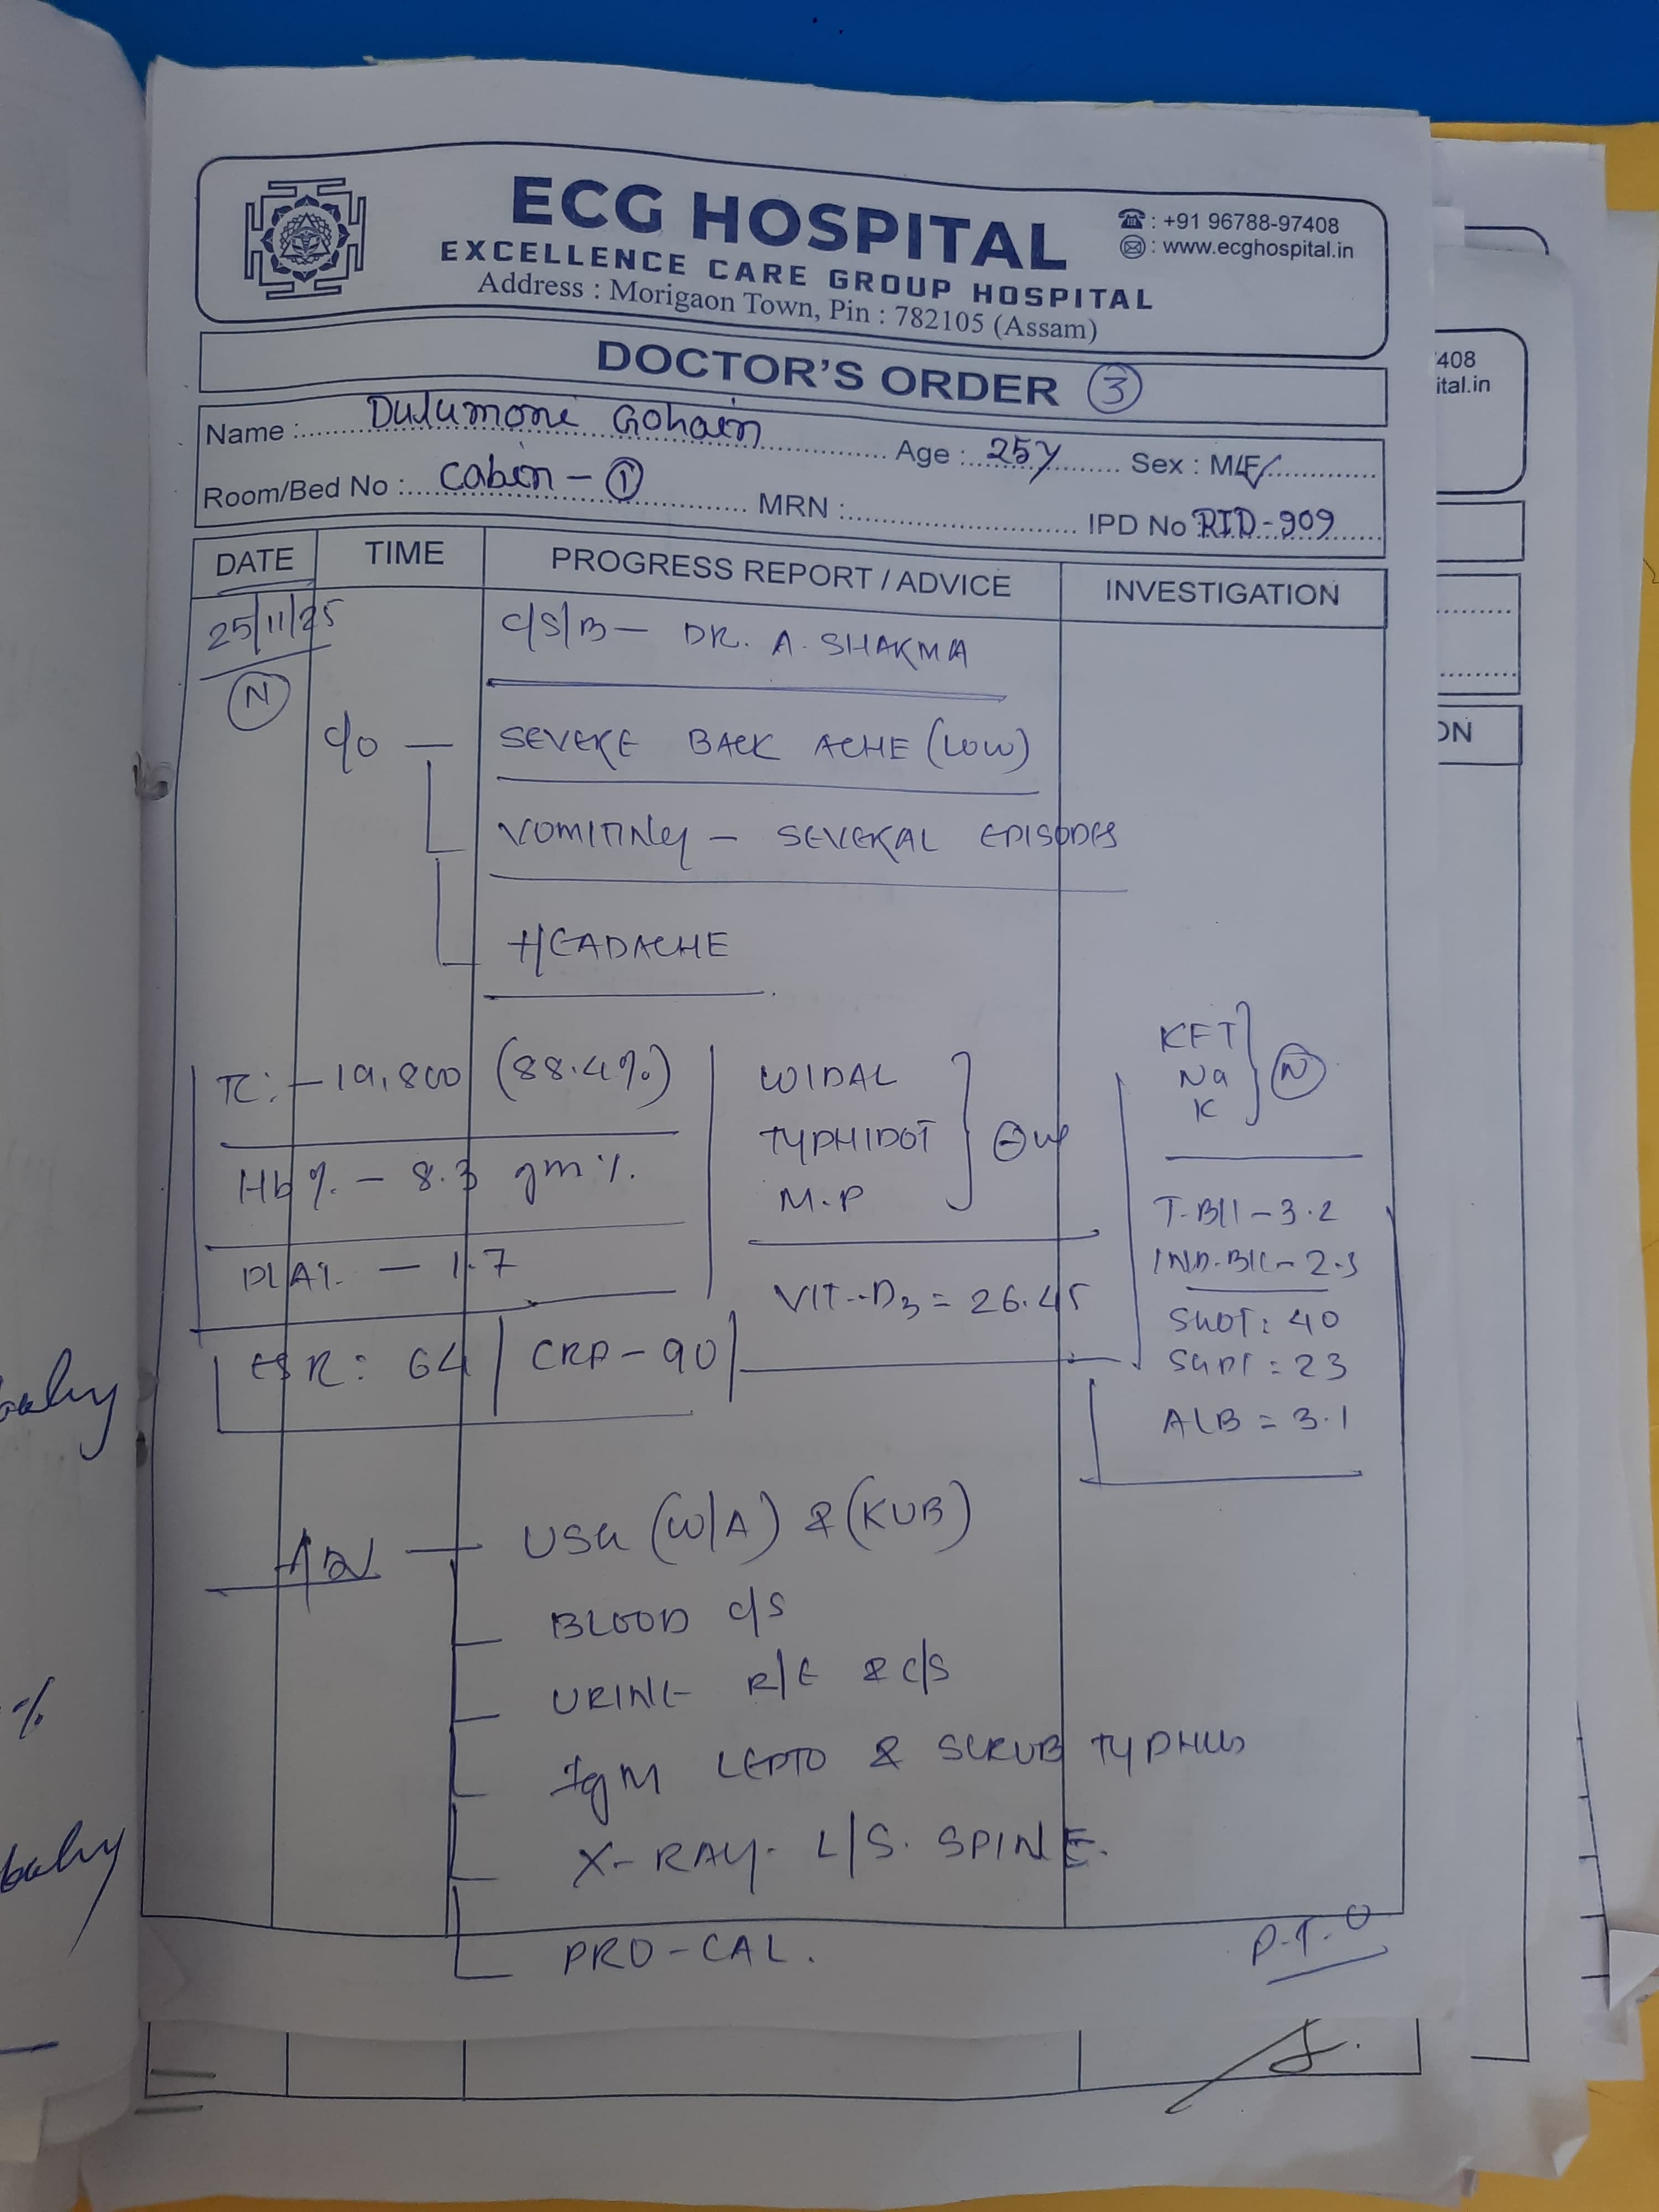 ECG HOSPITAL
EXCELLENCE CARE GROUP HOSPITAL
Address : Morigaon Town, Pin : 782105 (Assam)
☎ : +91 96788-97408
✉ : www.ecghospital.in
DOCTOR'S ORDER ③
Name : Dulumoni Gohain Age : 25y Sex : M/F
Room/Bed No : Cabin - ① MRN : IPD No RID-909
DATE TIME PROGRESS REPORT / ADVICE INVESTIGATION
25/11/25 C/S/B — DR. A. SHARMA
Ⓝ
C/O — SEVERE BACK ACHE (LOW)
VOMITING — SEVERAL EPISODES
HEADACHE
KFT
Na
K
Ⓝ
TC: — 19,800 (88.4%)
Hb% — 8.3 gm%
PLAT. — 1.7
ESR: 64 CRP - 90
WIDAL
TYPHIDOT
M.P
⊖ve
VIT-D3 = 26.45
T-Bil - 3.2
IND-BIL - 2.3
SGOT: 40
SGPT = 23
ALB = 3.1
ADV — USG (W/A) & (KUB)
BLOOD C/S
URINE R/E & C/S
IgM LEPTO & SCRUB TYPHUS
X-RAY- L/S. SPINE.
PRO-CAL.
P.T.O
408
ital.in
ON
baby
%